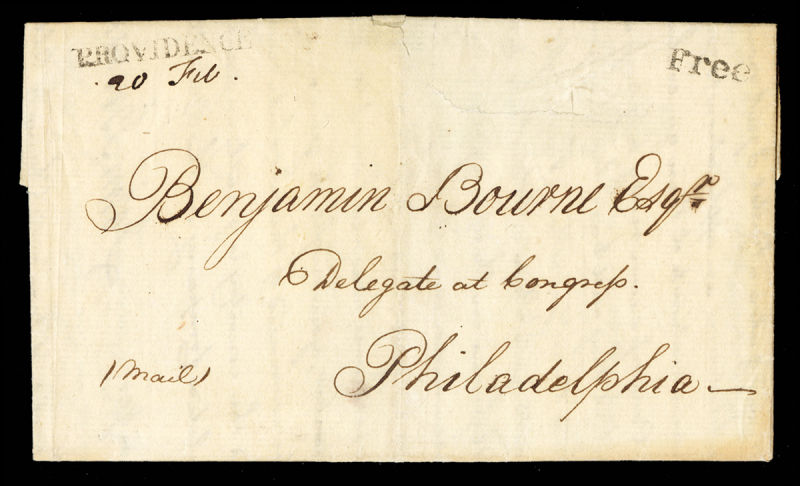 PROVIDENCE
20 Feb.
Free
Benjamin Bourne Esqr
Delegate at Congreſs.
(Mail)
Philadelphia